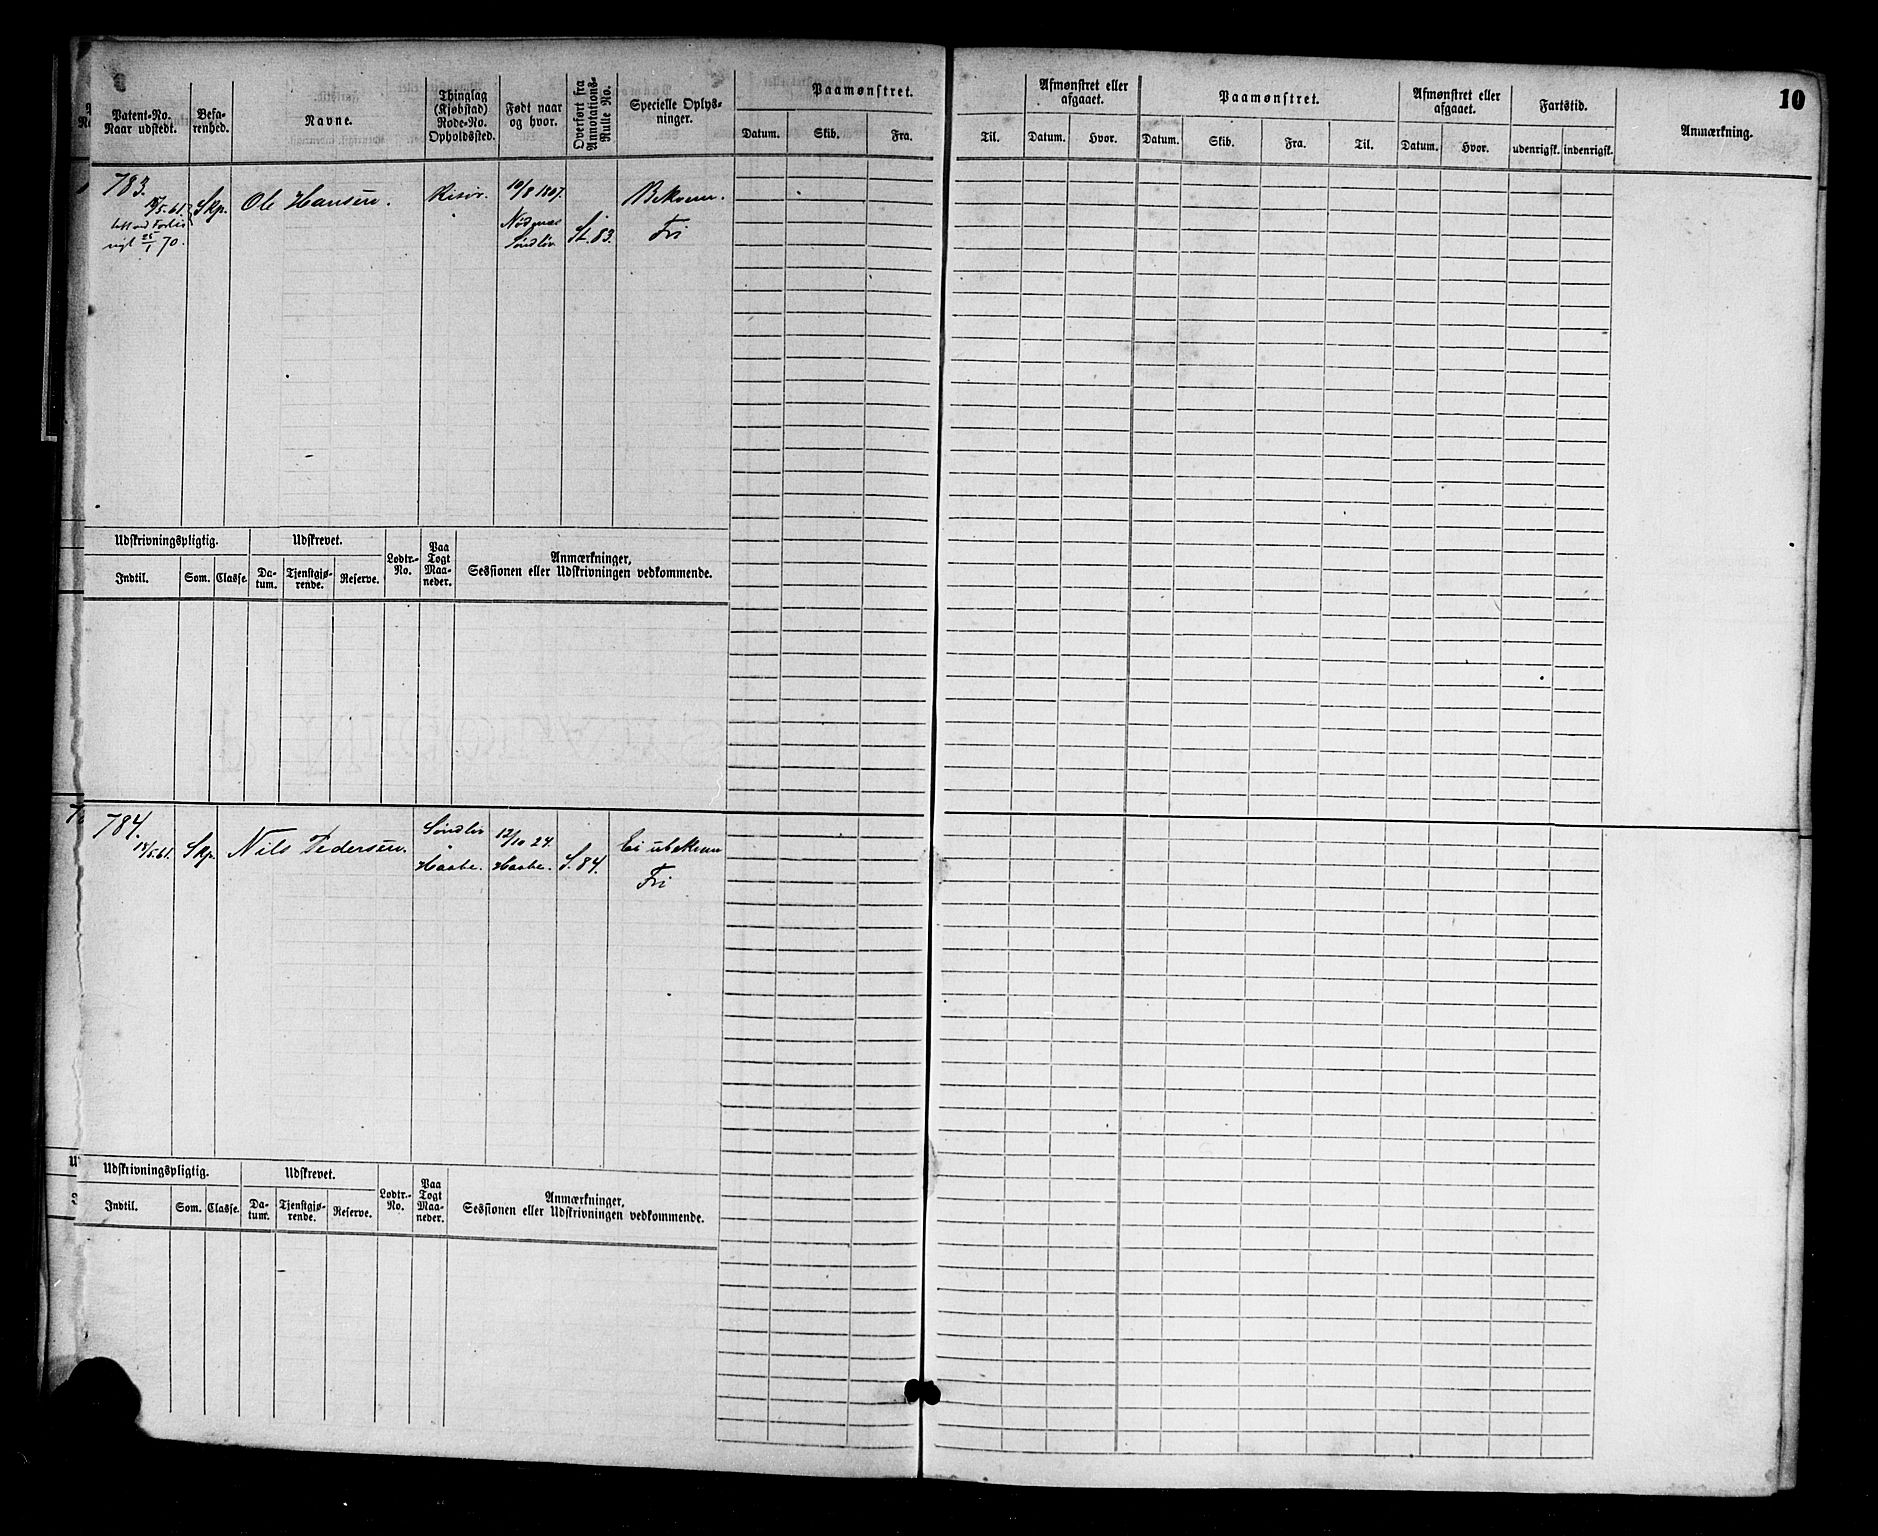 10
Patent-No.
Naar udstedt.
Befa-
renhed.
Navne.
Thinglag
(Kjøbstad)
Rode-No.
Opholdssted.
Født naar
og hvor.
Overført fra
Annotations-
Rulle No.
Specielle Oplys-
ninger.
Paamønstret.
Datum. Skib. Fra.
Til.
Afmønstret eller
afgaaet.
Datum. Hvor.
Paamønstret.
Datum. Skib. Fra. Til.
Afmønstret eller
afgaaet.
Datum. Hvor.
Fartstid.
udenrigsk. indenrigsk.
Anmærkning.
783.
Skp.
Ole Hansen.
Risør.
10/8 1807.
Søndlev
St. 83.
Bekvem.
Fri
Udskrivningspligtig.
Indtil. Som. Classe.
Udskrevet.
Da-
tum.
Tjenstgjø-
rende.
Reserve.
Lodtr.-
No.
Paa
Togt
Maa-
neder.
Anmærkninger,
Sessionen eller Udskrivningen vedkommende.
784.
Skp.
Nils Pedersen.
Søndlev
Haabe.
12/10 24.
Haabe.
S. 84.
Ei ubekvem
Fri
Udskrivningspligtig.
Indtil. Som. Classe.
Udskrevet.
Da-
tum.
Tjenstgjø-
rende.
Reserve.
Lodtr.-
No.
Paa
Togt
Maa-
neder.
Anmærkninger,
Sessionen eller Udskrivningen vedkommende.